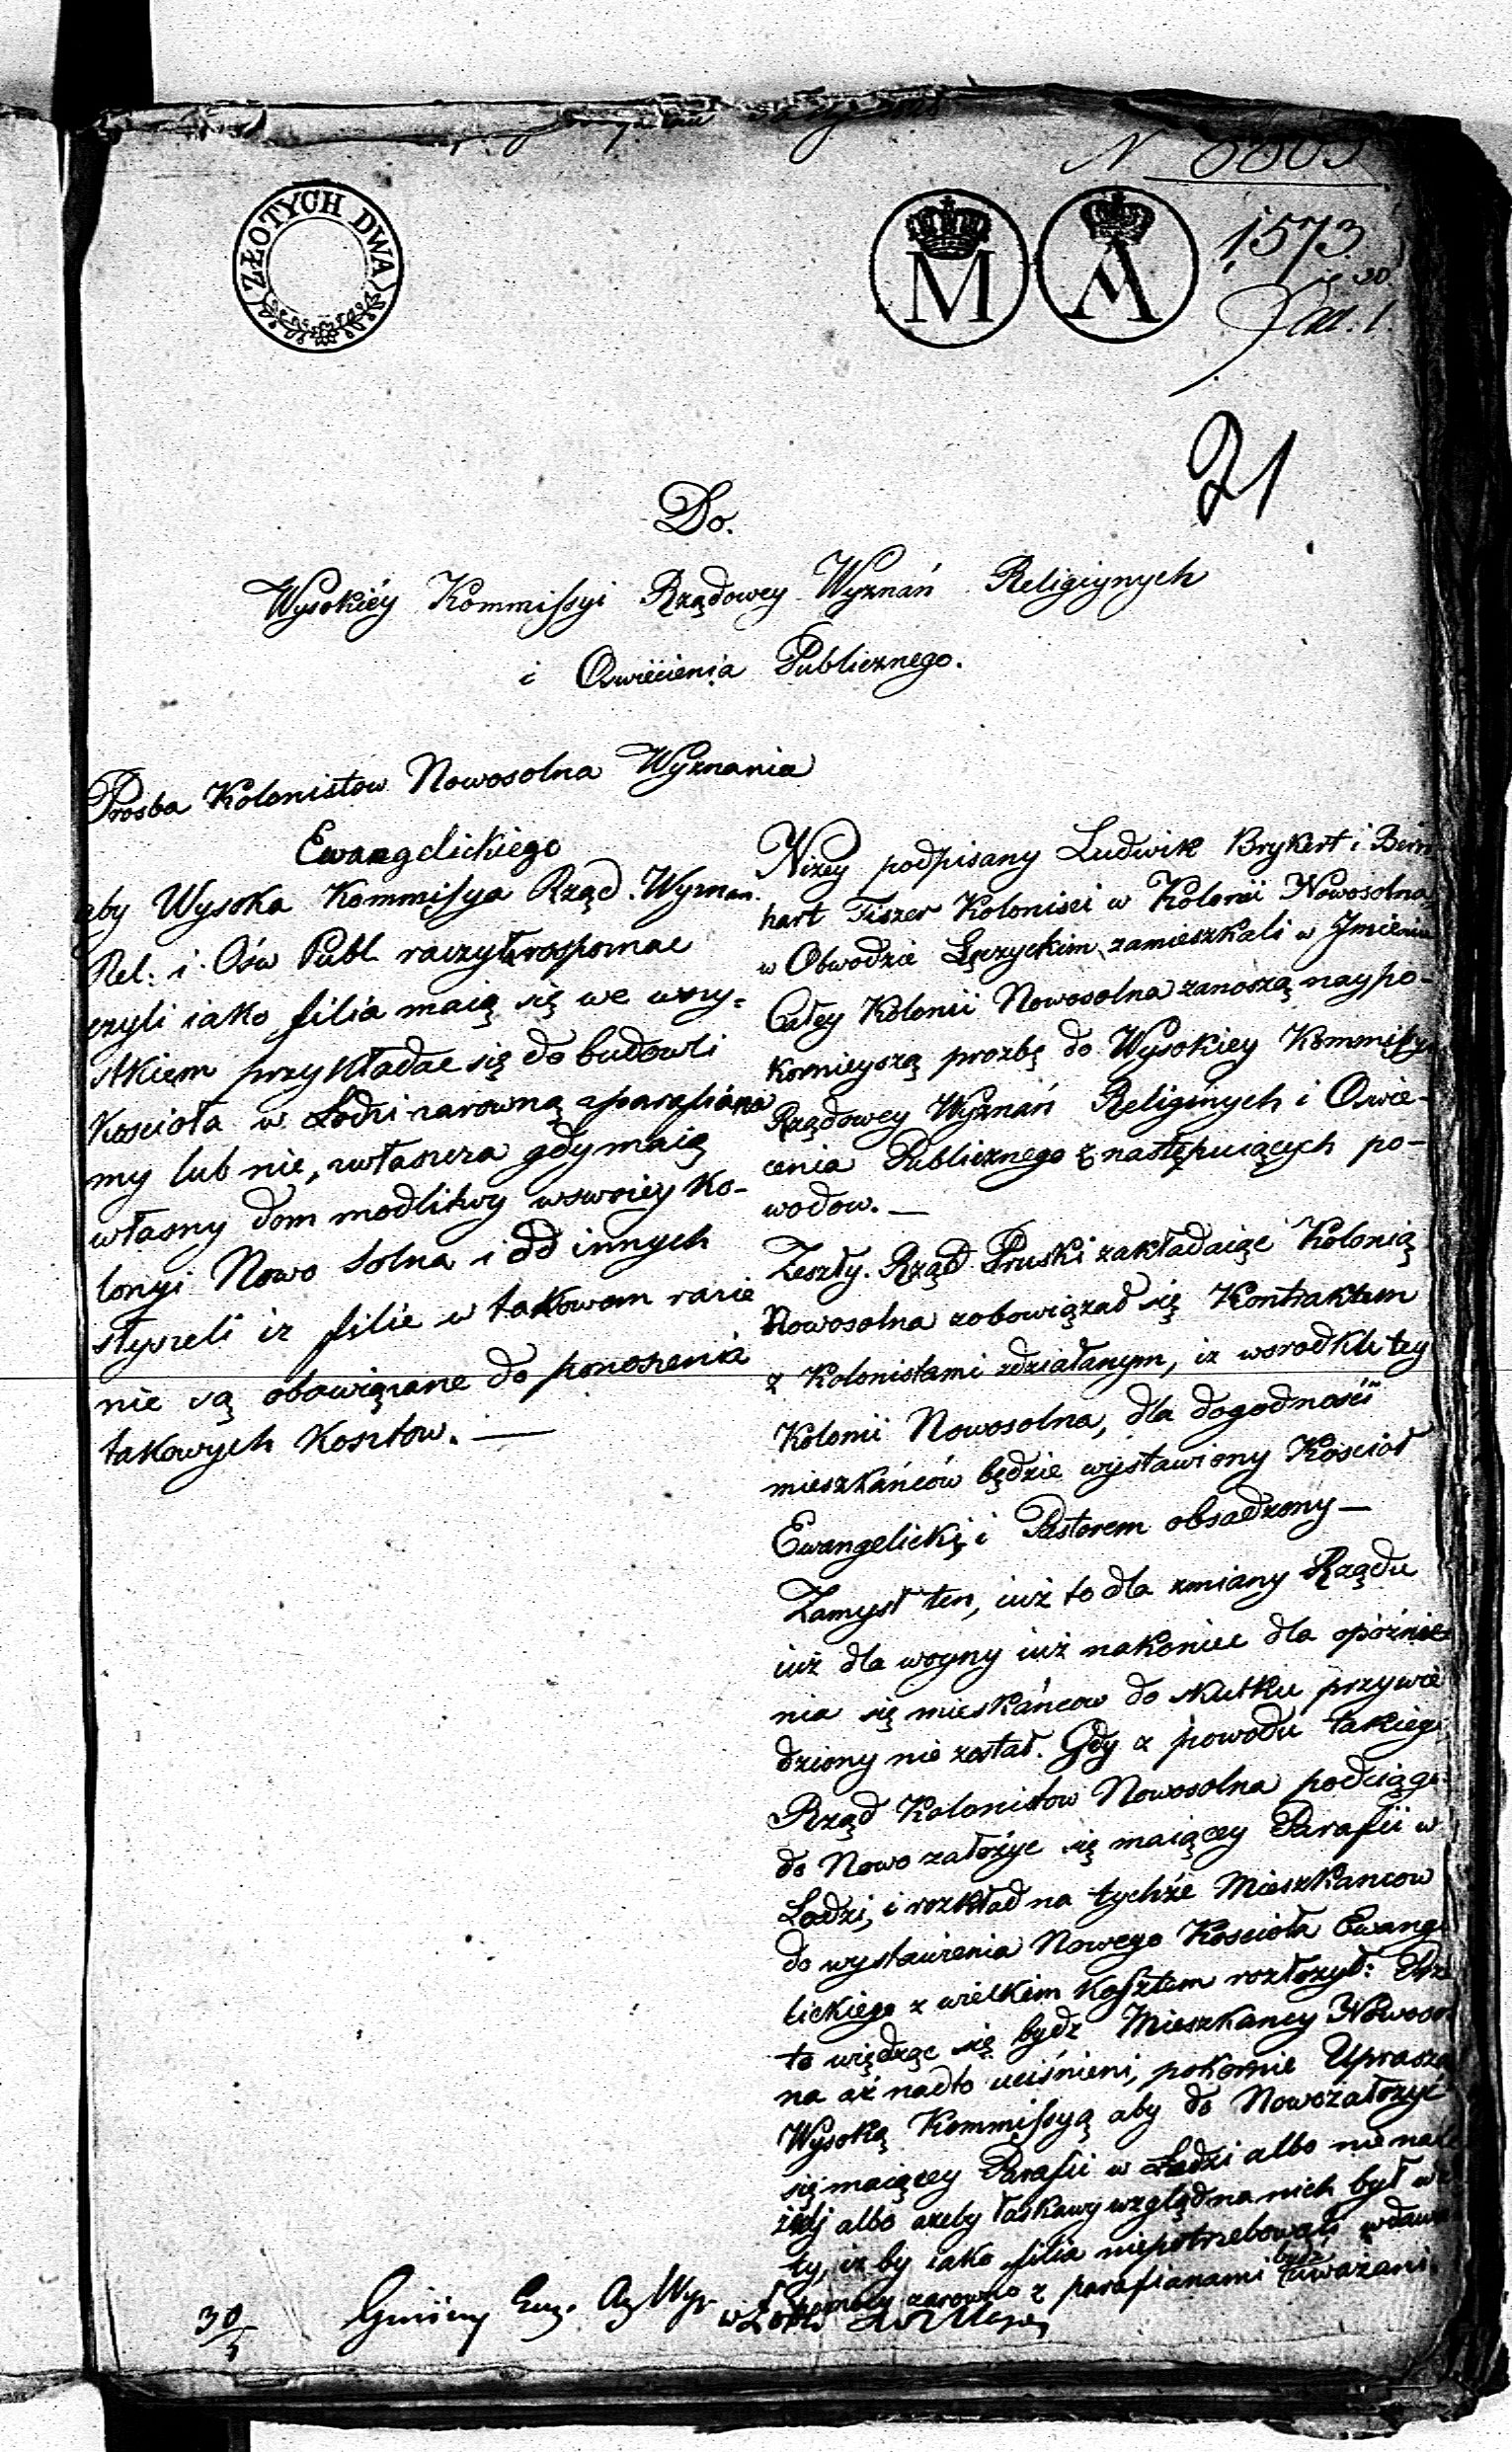 N 6803
1573
21
ZŁOTYCH DWA
M
A
Do.
Wysokiéy Kommissyi Rządowey Wyznań Religiynych
i Oswiecienia Publicznego.
Prosba Kolonistow Nowosolna Wyznania
Ewangelickiego
aby Wysoka Kommissya Rząd. Wyznan.
Rel: i Ośw Publ. raczyła rospoznac
czyli iako filia maią się we wszy=
stkiem przykładac się do budowli
Koscioła w Łodzi narowną z parafiana
my lub nie, zwłaszcza gdy maią
własny dom modlitwy w swoiey Ko-
lonyi Nowo Solna i od innych
słyszeli iz filie w takowem razie
nie są obowiązane do ponoszenia
takowych Kosztow. —
Niżey podpisany Ludwik Brykert i Bern
hart Fiszer Kolonisci w Kolonii Nowosolna
w Obwodzie Łęczyckim zamieszkali w Jmieniu
Całey Kolonii Nowosolna zanoszą naypo-
kornieyszą prozbę do Wysokiey Kommissyi
Rządowey Wyznań Religinych i Oswie-
cenia Publicznego z następuiących po-
wodow. —
Zeszły Rząd Pruski zakładaiąc Kolonią
Nowosolna zobowiązał się Kontraktem
z Kolonistami zdziałanym, iz wsrodku tey
Kolonii Nowosolna, dla dogodnosci
mieszkańców będzie wystawiony Kosciol
Ewangelicki i Pastorem obsadzony —
Zamysł ten, iuż to dla zmiany Rządu
iuż dla woyny iuż nakoniec dla opóźnie
nia się mieskáncow do skutku przywie
dziony nie został. Gdy z powodu takiego
Rząd Kolonistow Nowosolna podciąga
do Nowo założyc się maiącey Parafii w
Łodzi, i rozkład na tychże Mieszkancow
do wystawienia Nowego Koscioła Ewange
lickiego z wielkim kosztem rozłozył: Prze
to więdząc się bydz Mieszkancy Nowosol
na aż nadto uciśnieni, pokornie Uprasza
Wysoką Kommissyą aby do Nowozałozyć
się maiącey Parafii w Łodzi albo nie nale
żeli albo azeby łaskawy wzgląd na nich był wzię
ty, iz by iako filia niepotrzebowali
zarowno z parafianami bydz uważani.
30